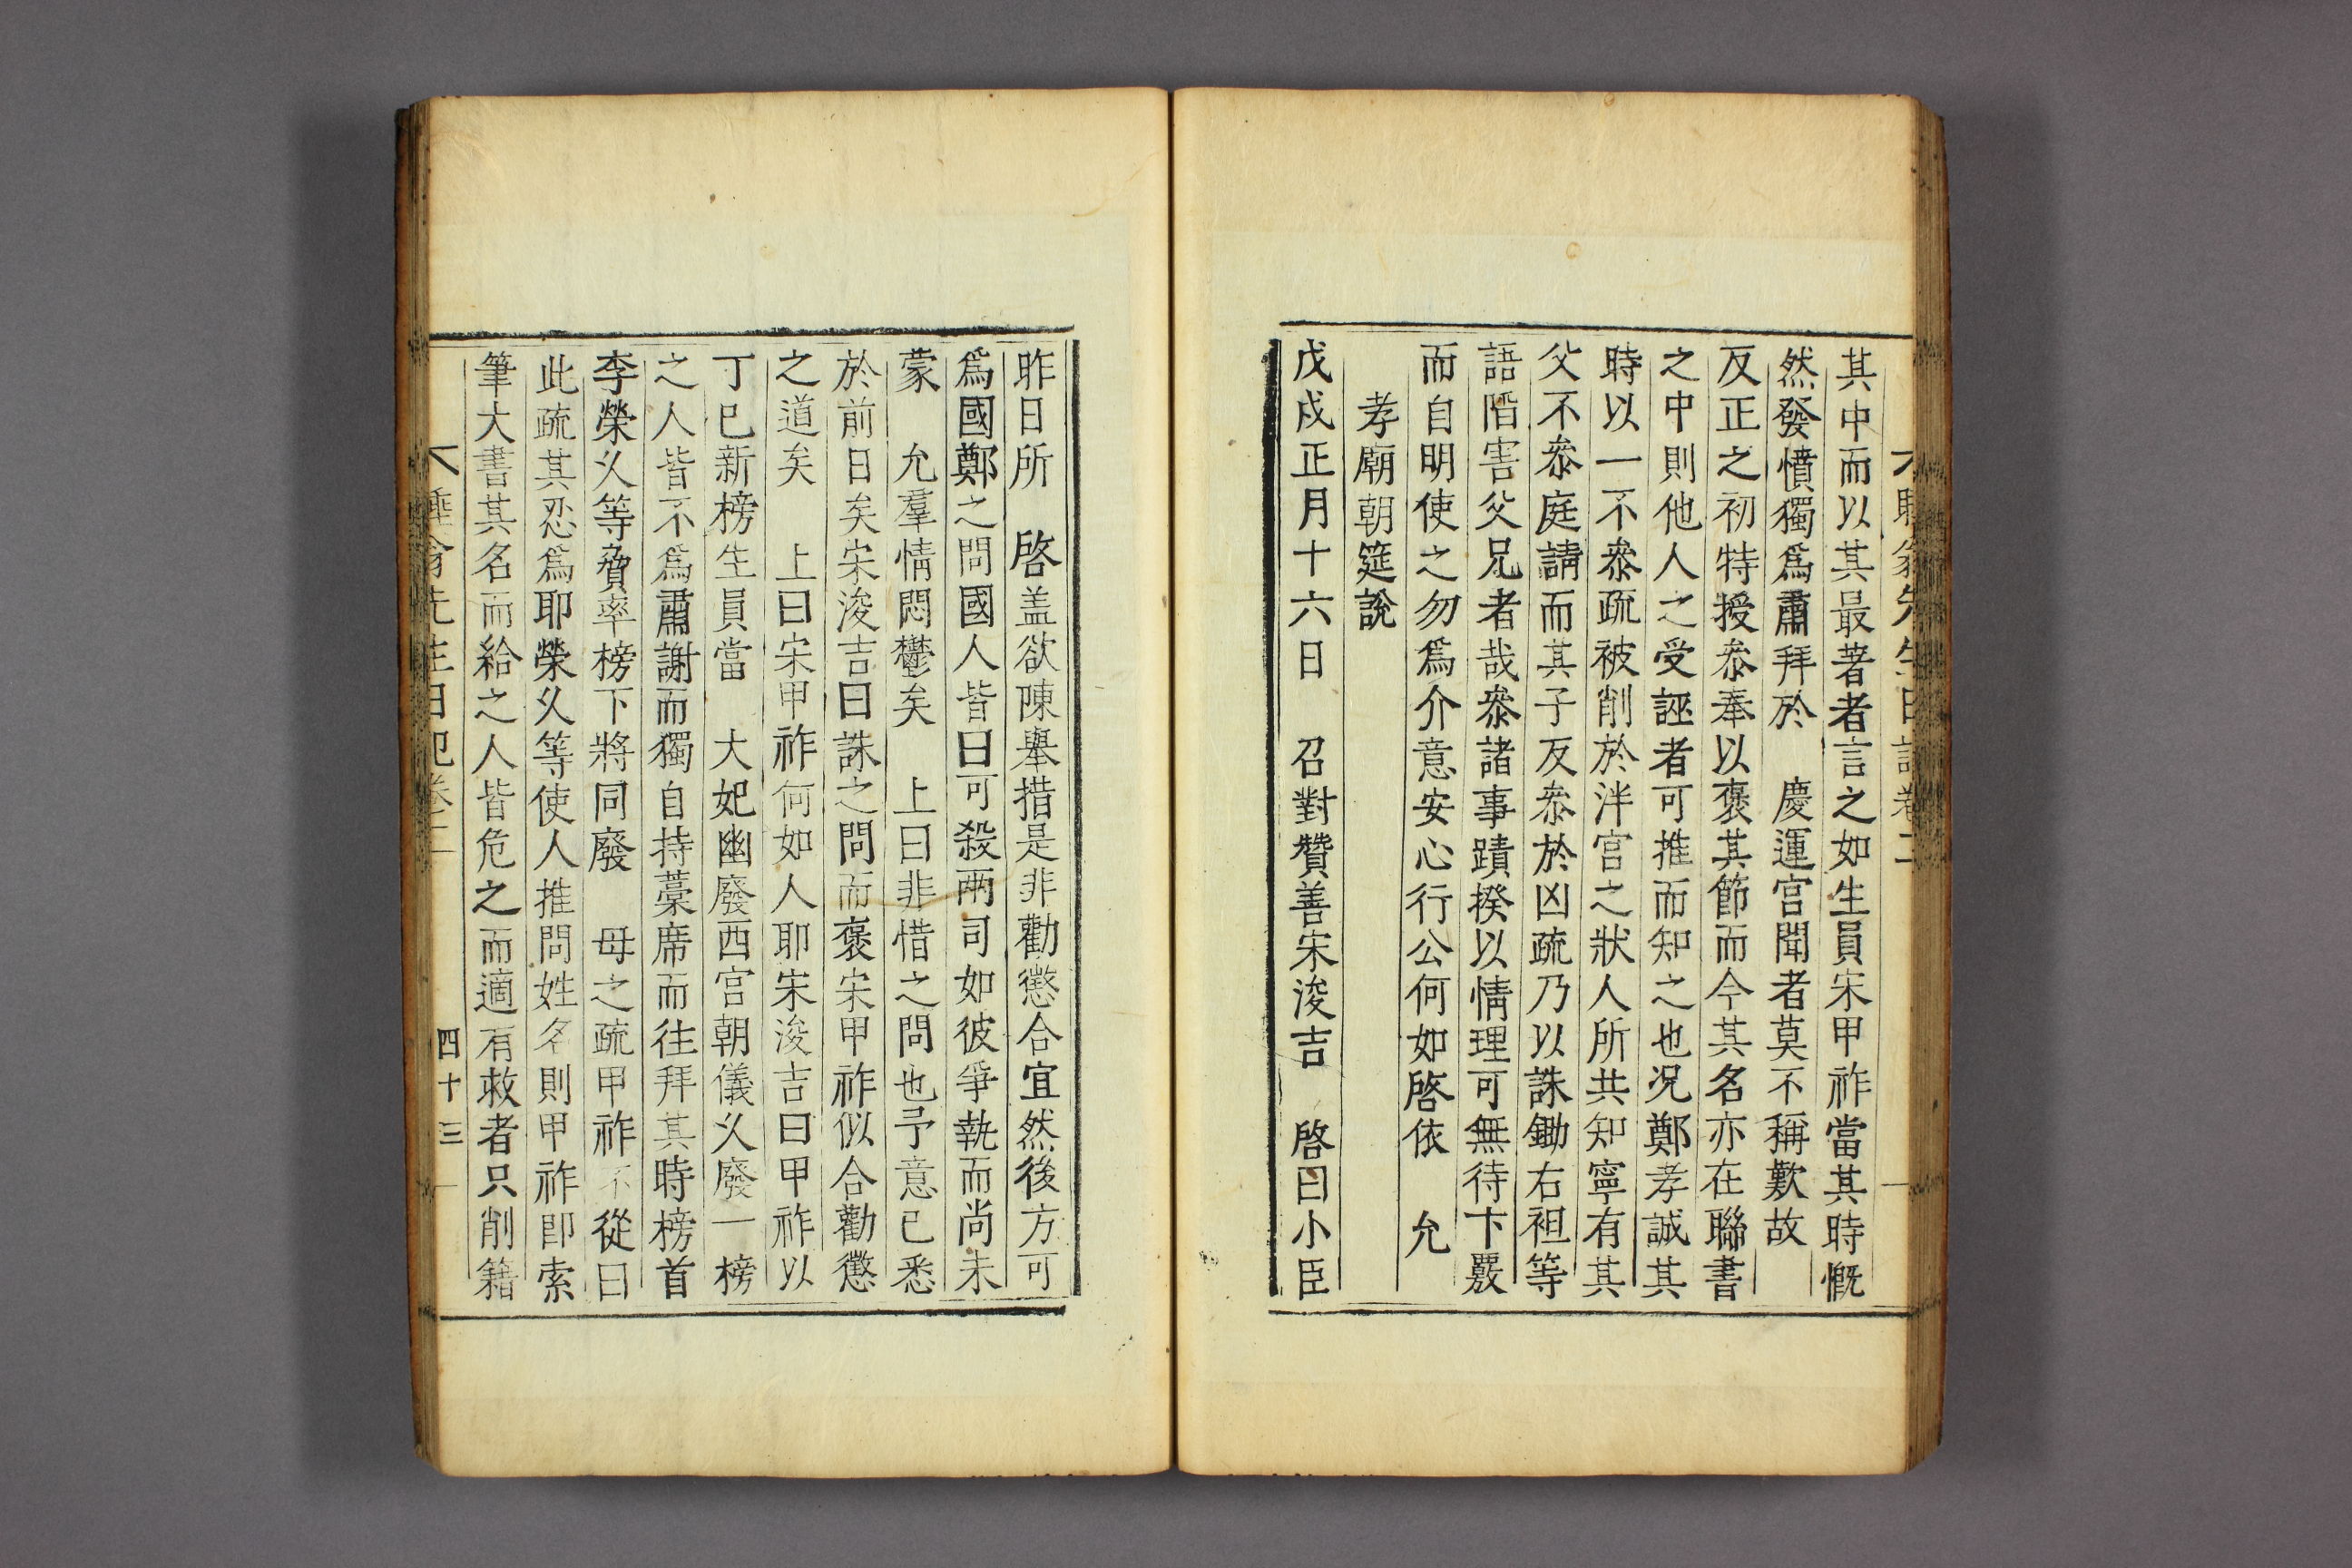 其中而以其最著者言之如生員宋甲祚當其時慨
然發憤獨爲肅拜於 慶運宮聞者莫不稱歎故
反正之初特授叅奉以褒其節而今其名亦在聯書
之中則他人之受誣者可推而知之也况鄭孝誠其
時以一不叅疏被削於泮宮之狀人所共知寧有其
父不叅庭請而其子反叅於凶疏乃以誅鋤右袒等
語陷害父兄者哉叅諸事蹟揆以情理可無待卞覈
而自明使之勿爲介意安心行公何如啓依 允
孝廟朝筵說
戊戌正月十六日 召對贊善宋浚吉 啓曰小臣
昨日所 啓盖欲陳舉措是非勸懲合宜然後方可
爲國鄭之問國人皆曰可殺兩司如彼爭執而尚未
蒙 允羣情悶鬱矣 上曰非惜之問也予意已悉
於前日矣宋浚吉曰誅之問而褒宋甲祚似合勸懲
之道矣 上曰宋甲祚何如人耶宋浚吉曰甲祚以
丁巳新榜生員當 大妃幽廢西宮朝儀乆廢一榜
之人皆不爲肅謝而獨自持藁席而往拜其時榜首
李榮乆等脅率榜下將同廢 母之疏甲祚不從曰
此疏其忍爲耶榮乆等使人推問姓名則甲祚卽索
筆大書其名而給之人皆危之而適有救者只削籍
睡翁先生日記卷二 四十三